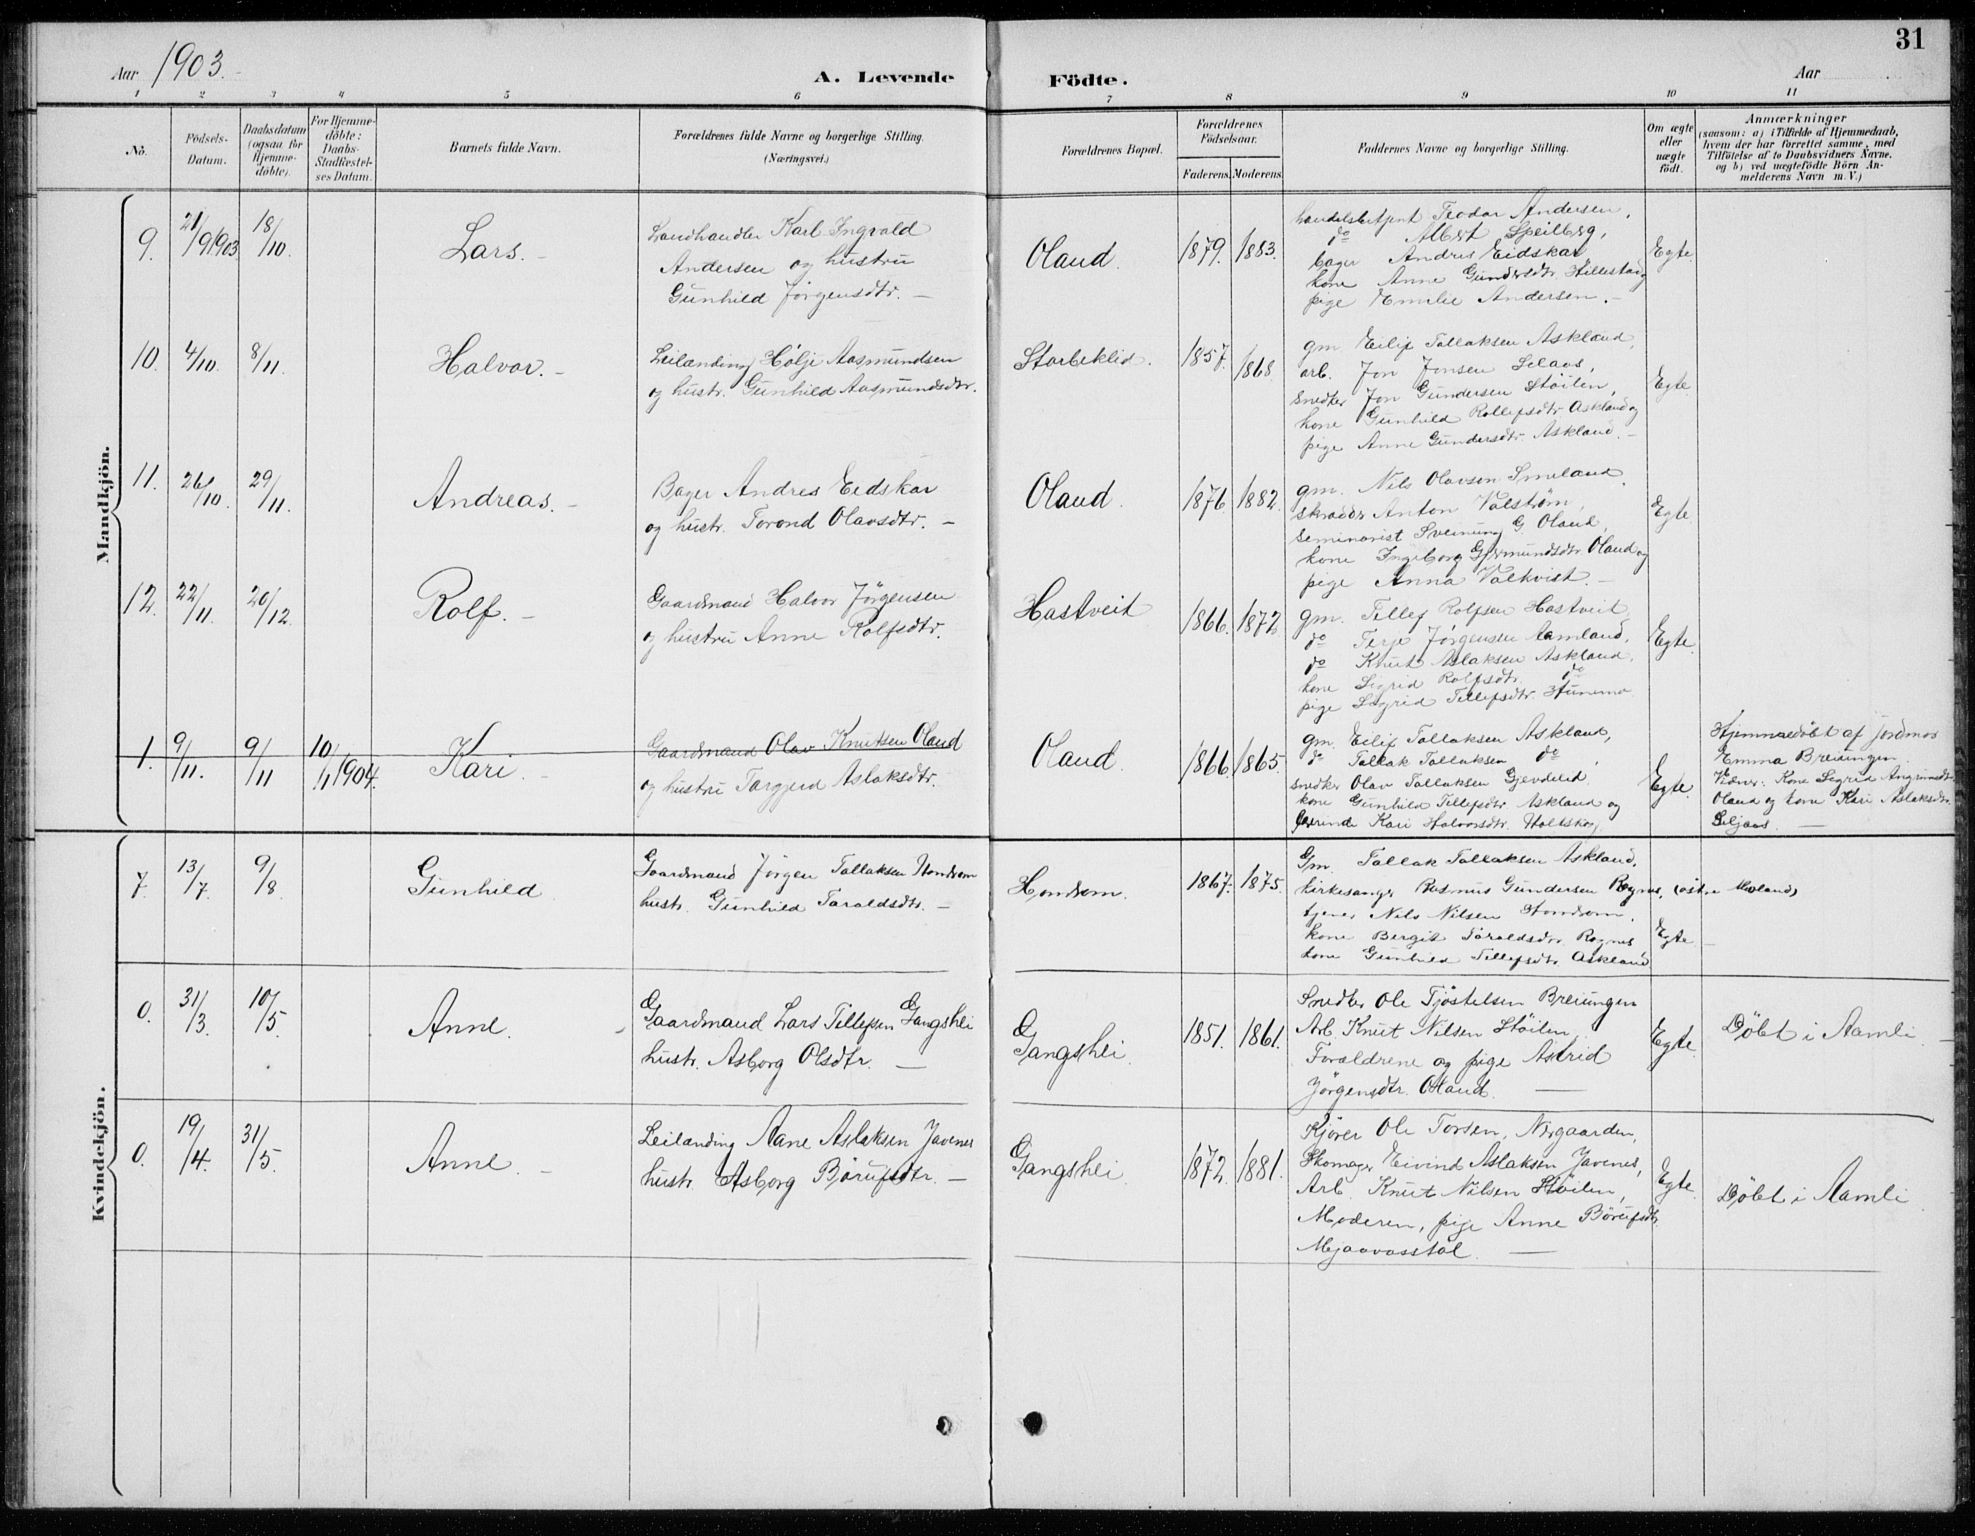 31
Aar 1903.
A. Levende Födte.
Aar
1 2 3 4 5 6 7 8 9 10 11
No.
Födsels-Datum.
Daabsdatum (ogsaa for Hjemme-döbte).
For Hjemme-döbte: Daabs-Stadfæstel-ses Datum.
Barnets fulde Navn.
Forældrenes fulde Navne og borgerlige Stilling.
(Næringsvei.)
Forældrenes Bopæl.
Forældrenes Födselsaar.
Faderens. Moderens.
Faddernes Navne og borgerlige Stilling.
Om ægte eller uægte födt.
Anmærkninger
(saasom: a) i Tilfælde af Hjemmedaab,
hvem der har forrettet samme, med
Tilföielse af to Daabsvidners Navne,
og b) ved uægtefödte Börn An-
melderens Navn m. V.)
Mandkjön.
9. 21/9 1903 18/10. Lars. –
Landhandler Karl Ingvald
Andersen og hustru
Gunhild Jørgensdtr. –
Oland. 1879. 1883.
handelsbetjent Teodor Andersen,
do Albert Speilberg,
bager Andres Eidskar,
kone Anne Gundersdtr.
pige Emilie Andersen. –
Egte.
10. 4/10. 8/11. Halvor. –
Leilænding Hølje Aasmundsen
og hustr. Gunhild Aasmundsdtr.
Storbeklid. 1857. 1868
gm. Eilif Tallaksen Askland,
arb. Jon Jonsen Selaas,
snedker Jon Gundersen Støilen,
kone Gunhild Rollefsdtr. Askland og
pige Anne Gundersdtr. Askland. –
Egte.
11. 26/10. 29/11. Andreas. –
Bager Andres Eidskar
og hustr. Torond Olavsdtr. –
Oland. 1876. 1882.
gm. Nils Olavson Smeland,
skrædder Anton Valstrøm,
seminarist Sveinung G. Oland,
kone Ingeborg Germundsdtr. Oland og
pige Anna Valkvist. –
Egte
12. 22/11. 20/12. Rolf. –
Gaardmand Halvor Jørgensen
og hustru Anne Rolfsdtr.
Hastveit 1866. 1872
gm. Tellef Rolfsen Hastveit,
do Terje Jørgensen Aamland,
do Knut Aslaksen Askland,
kone Sigrid Rolfsdtr. do
pige Sigrid Tellefsdtr.
Egte.
1. 9/11. 9/11 10/1 1904. Kari. –
Gaardmand Olav Knutsen Oland
og hustru Targjerd Aslaksdtr.
Oland. 1866. 1865.
gm. Eilif Tallaksen Askland,
do Tallak Tallaksen do,
snedker Olav Tallaksen Gjevdelid
kone Gunhild Tellefsdtr. Askland og
Kari Halvorsdtr.
Egte.
Hjemmedöbt af jordmor
Emma Breiungen.
Vidner: Kone Sigrid
Oland og kone Kari Aslaksdtr.
Seljaas. –
Kvindekjön.
7. 13/7 9/8 Gunhild
Gaardmand Jørgen Tallaksen Hondrom
hustr. Gunhild Taraldsdtr. –
Hondrom. 1867. 1875.
Gm. Tallak Tallaksen Askland,
kirkesanger Rasmus Gundersen Rognes, (østre Moland)
tjener Nils Nilsen Hondrom,
kone Bergit Taraldsdtr. Rognes
kone Gunhild Tellefsdtr. Askland
Egte –
0. 31/3. 10/5 Anne. –
Gaardmand Lars Tellefsen Gangshei
hustr. Asborg Olsdtr. –
Gangshei. 1851. 1861.
Snedker Ole Tjöstelsen Breiungen
Arb. Knut Nilsen Støilen,
Forældrene og pige Astrid
Jørgensdtr. Oland. –
Egte.
Döbt i Aamli. –
0. 19/4. 31/5. Anne. –
Leilænding Aane Aslaksen Javenes
hustr. Asborg Börufsdtr. –
Gangshei. 1872. 1881.
Kjører Ole Torsen, Nergaarden,
Skomager Eivind Aslaksen Javenes,
Arb. Knut Nilsen Støilen,
Moderen, pige Anne Börufsdtr.
Mjaavasstøl. –
Egte
Döbt i Aamli